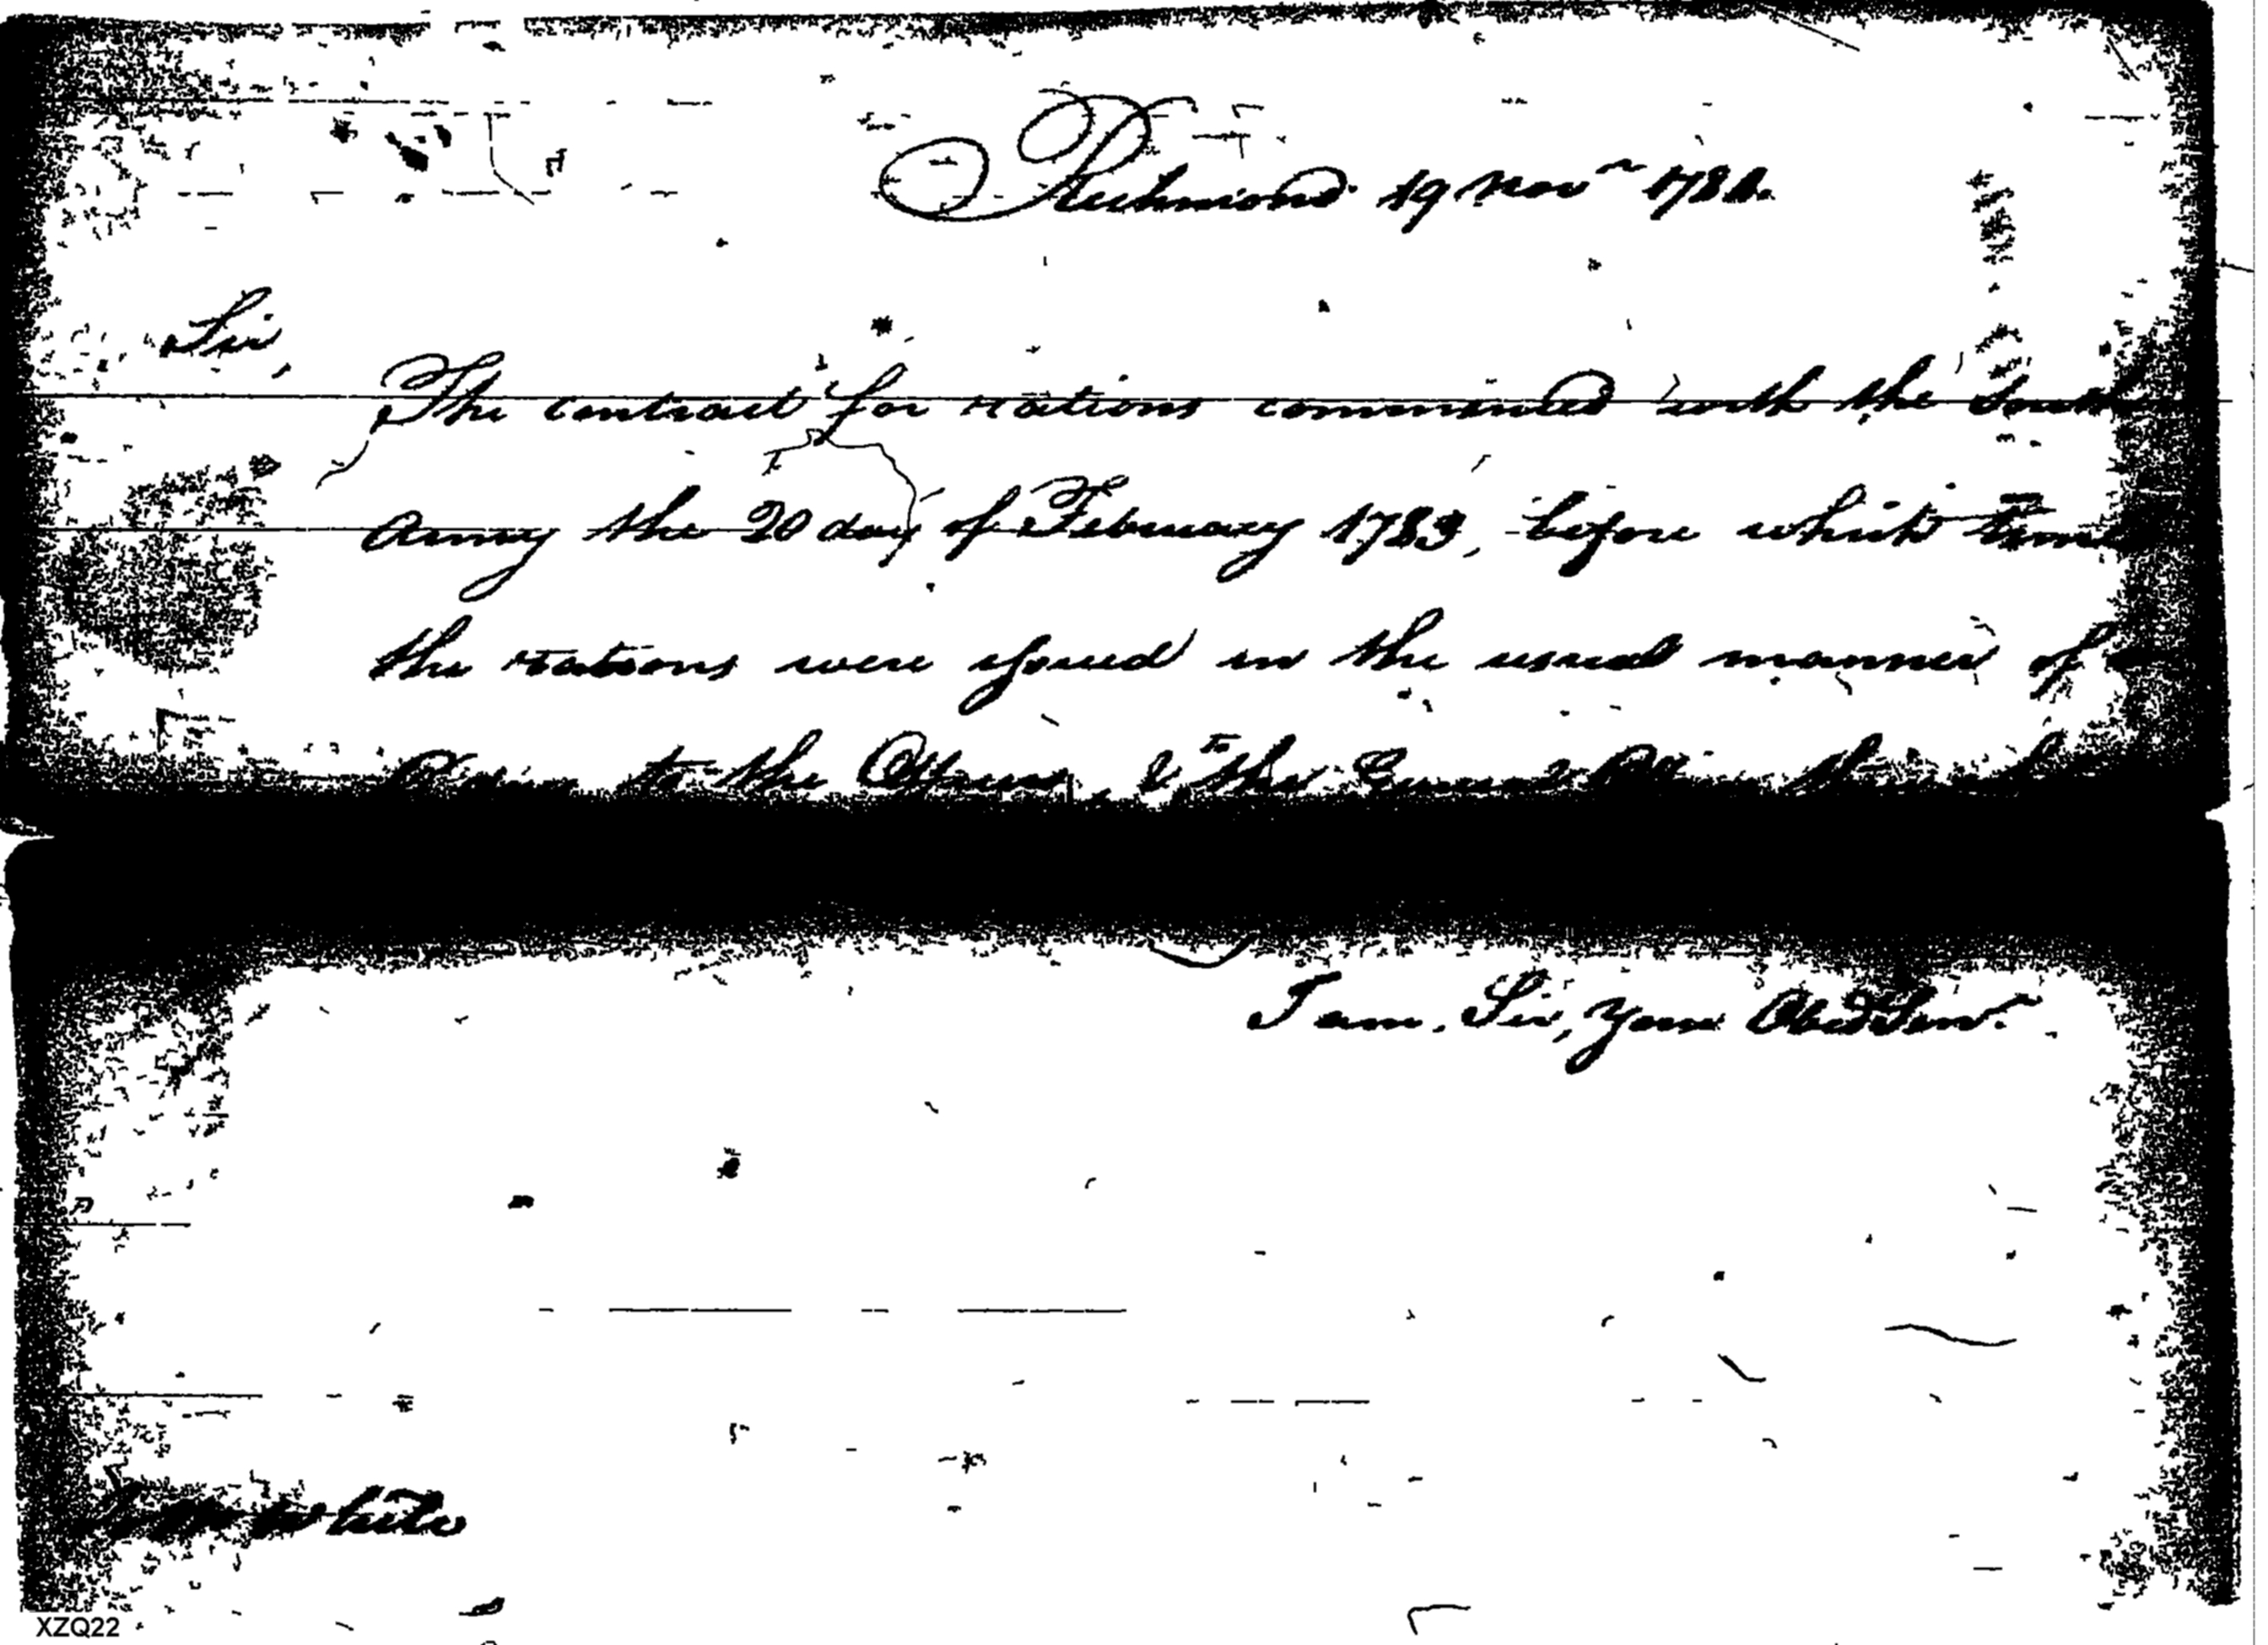 Richmond 19 Novr
Sir,
The contract for rations commenced with the South
Army the 20 day of February 1783, before which time
the rations were issued in the usual manner of
to the Officers, & the
I am, Sir, your Obed Serv.
White
XZQ22